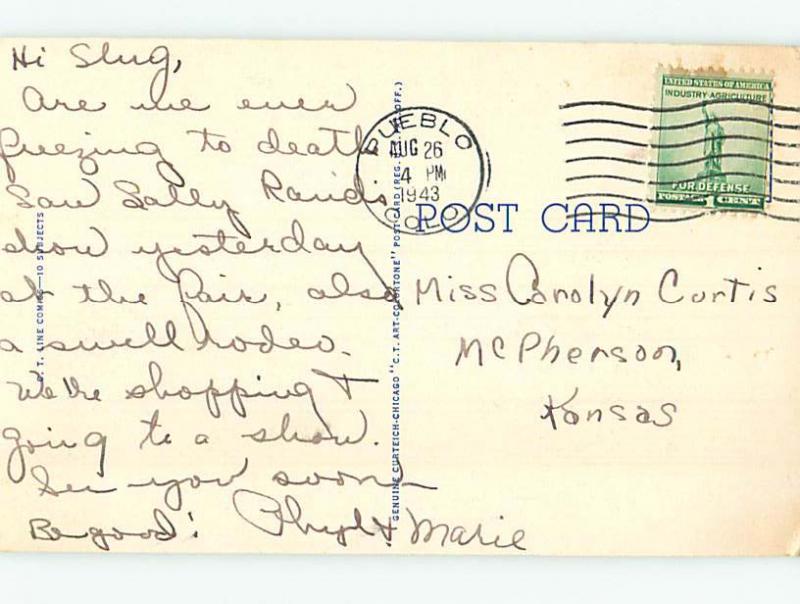 Hi Slug,
Are we ever
freezing to death
Saw Sally Rand's
show yesterday
at the fair, also
a swell rodeo.
We're shopping +
going to a show.
See you soon
Be good! Phyl + Marie
C. T. LINE COMICS—10 SUBJECTS
GENUINE CURTEICH-CHICAGO "C. T. ART-COLORTONE" POST CARD (REG. OFF.)
PUEBLO
AUG 26
4 PM
1943
COLO
UNITED STATES OF AMERICA
INDUSTRY AGRICULTURE
FOR DEFENSE
POSTAGE 1 CENT
POST CARD
Miss Carolyn Curtis
McPherson,
Kansas